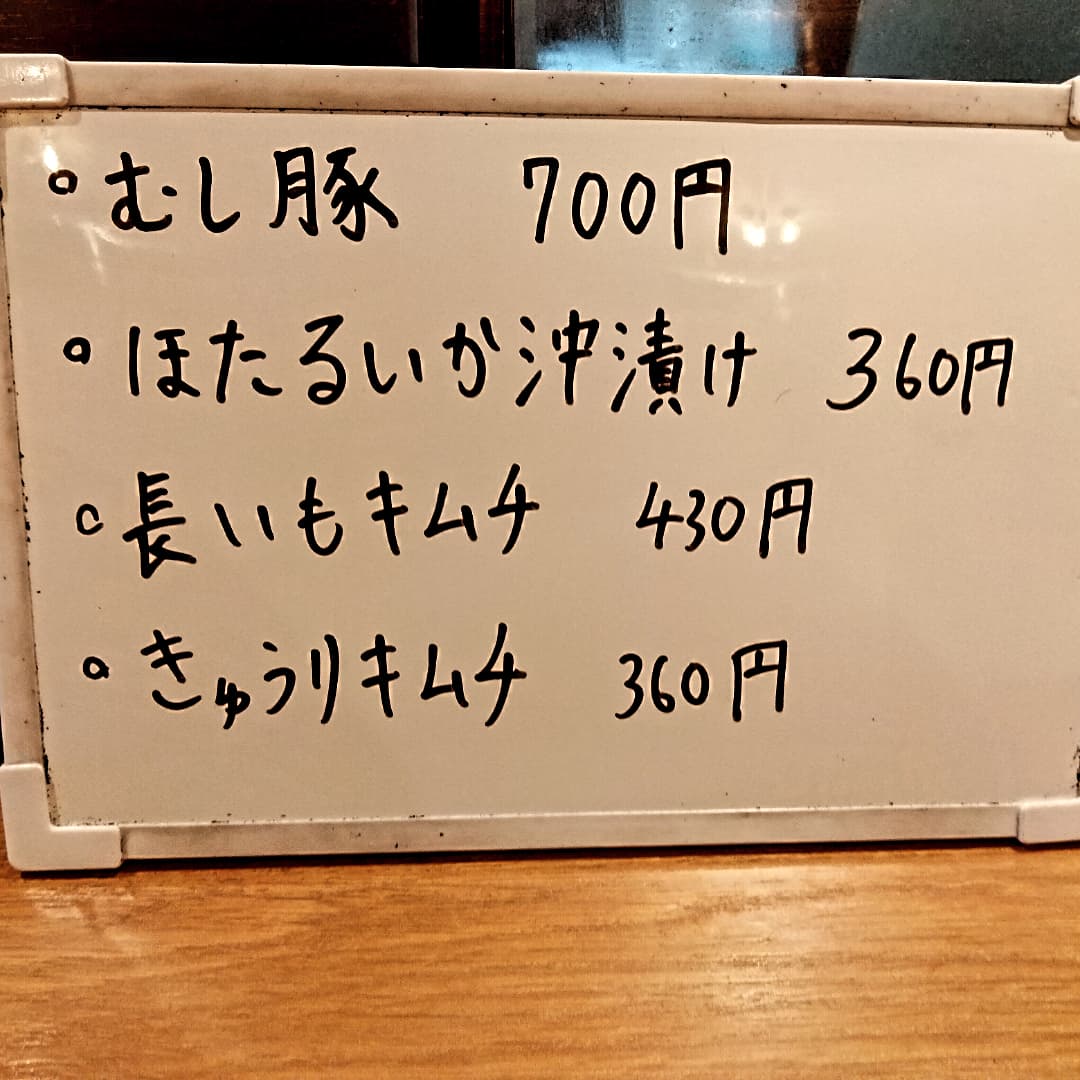 。むし豚 700円
。ほたるいか沖漬け 360円
。長いもキムチ 430円
。きゅうりキムチ 360円